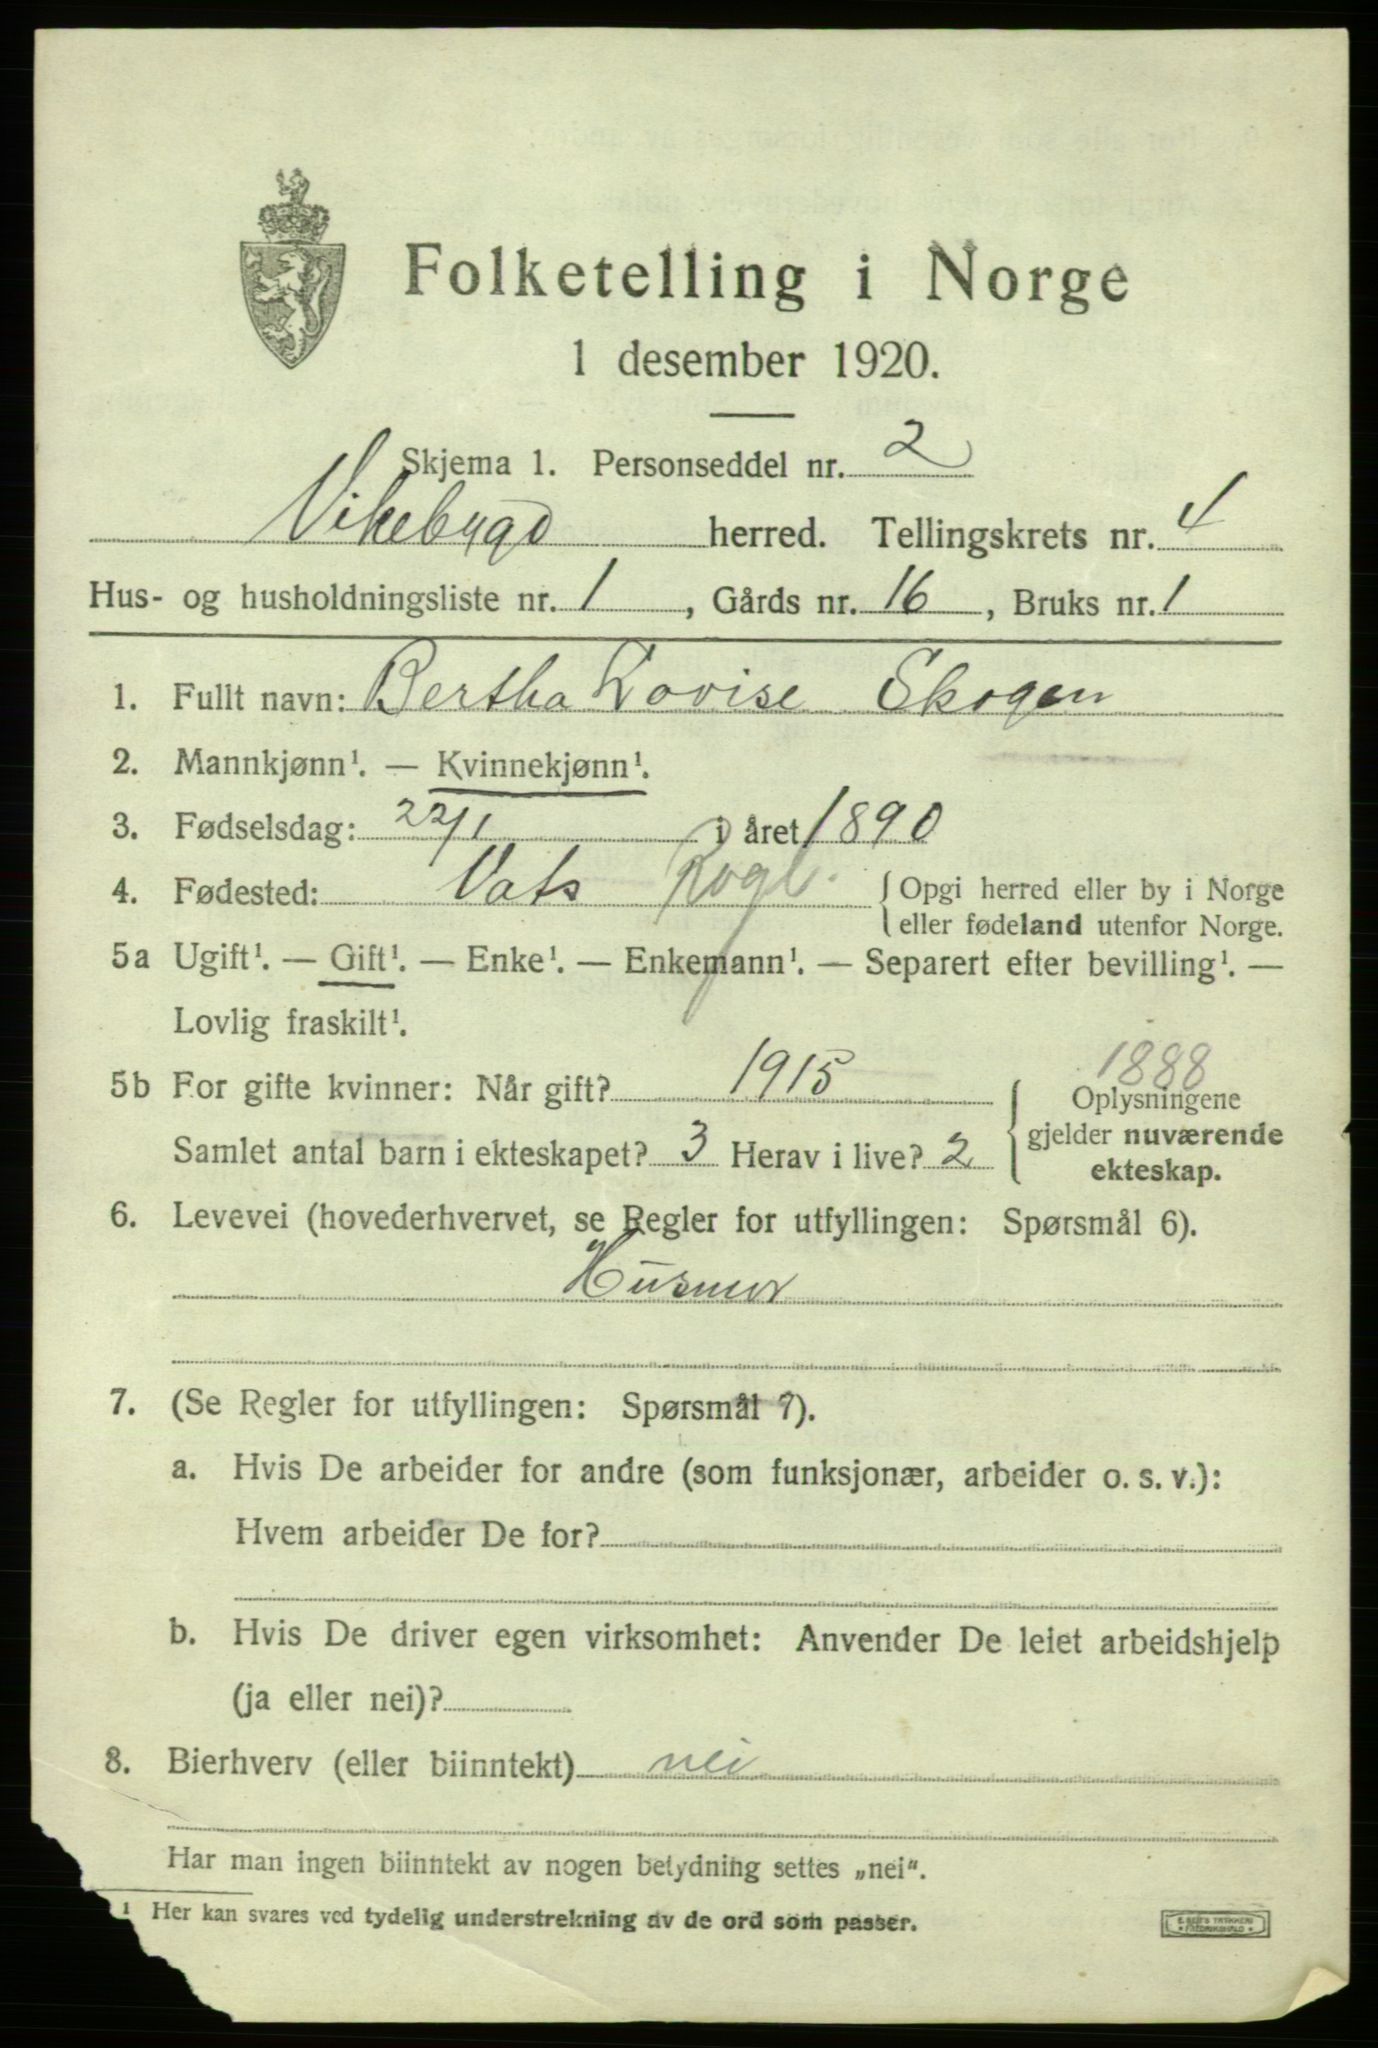 Folketelling i Norge
1 desember 1920.
Skjema 1. Personseddel nr. 2
Vikebygd herred. Tellingskrets nr. 4
Hus- og husholdningsliste nr. 1, Gårds nr. 16, Bruks nr. 1
1. Fullt navn: Bertha Lovise Skogen
2. Mannkjønn¹. — Kvinnekjønn¹.
3. Fødselsdag: 22/1 i året 1890
4. Fødested: Vats Rogl. { Opgi herred eller by i Norge
eller fødeland utenfor Norge.
5a Ugift¹. — Gift¹. — Enke¹. — Enkemann¹. — Separert efter bevilling¹. —
Lovlig fraskilt¹.
1888
5b For gifte kvinner: Når gift? 1915 { Oplysningene
gjelder nuværende
Samlet antal barn i ekteskapet? 3 Herav i live? 2
ekteskap.
6. Levevei (hovederhvervet, se Regler for utfyllingen: Spørsmål 6).
Husmor
7. (Se Regler for utfyllingen: Spørsmål 7).
a. Hvis De arbeider for andre (som funksjonær, arbeider o. s. v.):
Hvem arbeider De for?
b. Hvis De driver egen virksomhet: Anvender De leiet arbeidshjelp
(ja eller nei)?
8. Bierhverv (eller biinntekt) nei
Har man ingen biinntekt av nogen betydning settes „nei“.
¹ Her kan svares ved tydelig understrekning av de ord som passer.